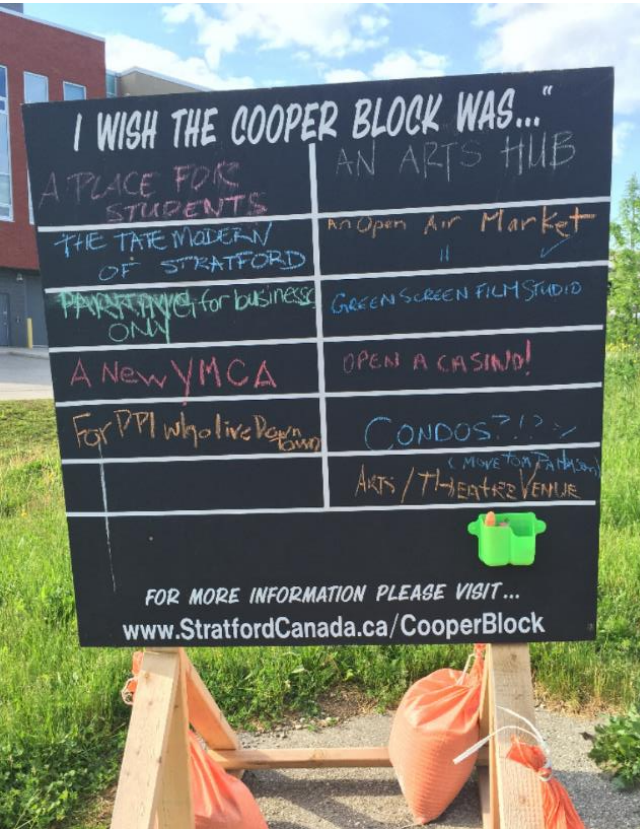 I WISH THE COOPER BLOCK WAS..."
A PLACE FOR
STUDENTS
THE TATE MODERN
OF STRATFORD
PARKING for business
ONLY
A New YMCA
For PPl who live Down
town
AN ARTS HUB
An Open Air Market
"
GREEN SCREEN FILM STUDIO
OPEN A CASINO!
CONDOS?!?
(MOVE TOM PATTERSON)
ARTS / THEATRE VENUE
FOR MORE INFORMATION PLEASE VISIT...
www.StratfordCanada.ca/CooperBlock